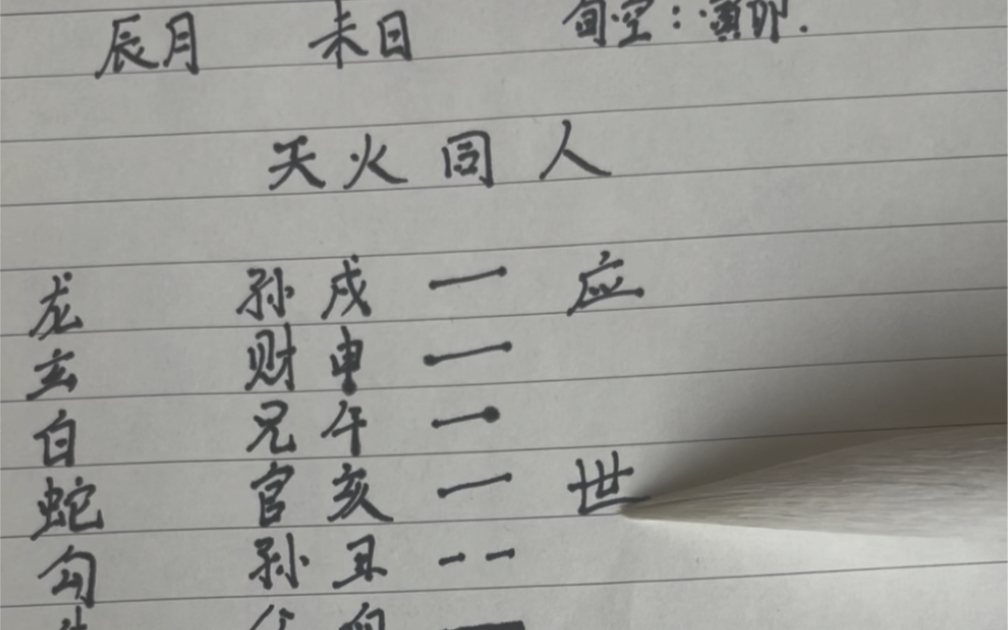 辰月 未日 旬空：寅卯.
天火同人
龙 孙戌 应
玄 财申
白 兄午
蛇 官亥 世
勾 孙丑